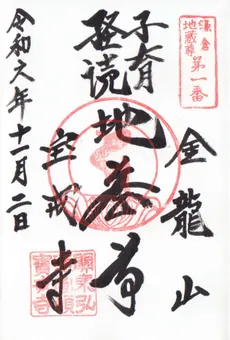 鎌倉
地蔵尊
第一番
金龍山
子育
経読地蔵尊
宝戒寺
令和六年十一月二日